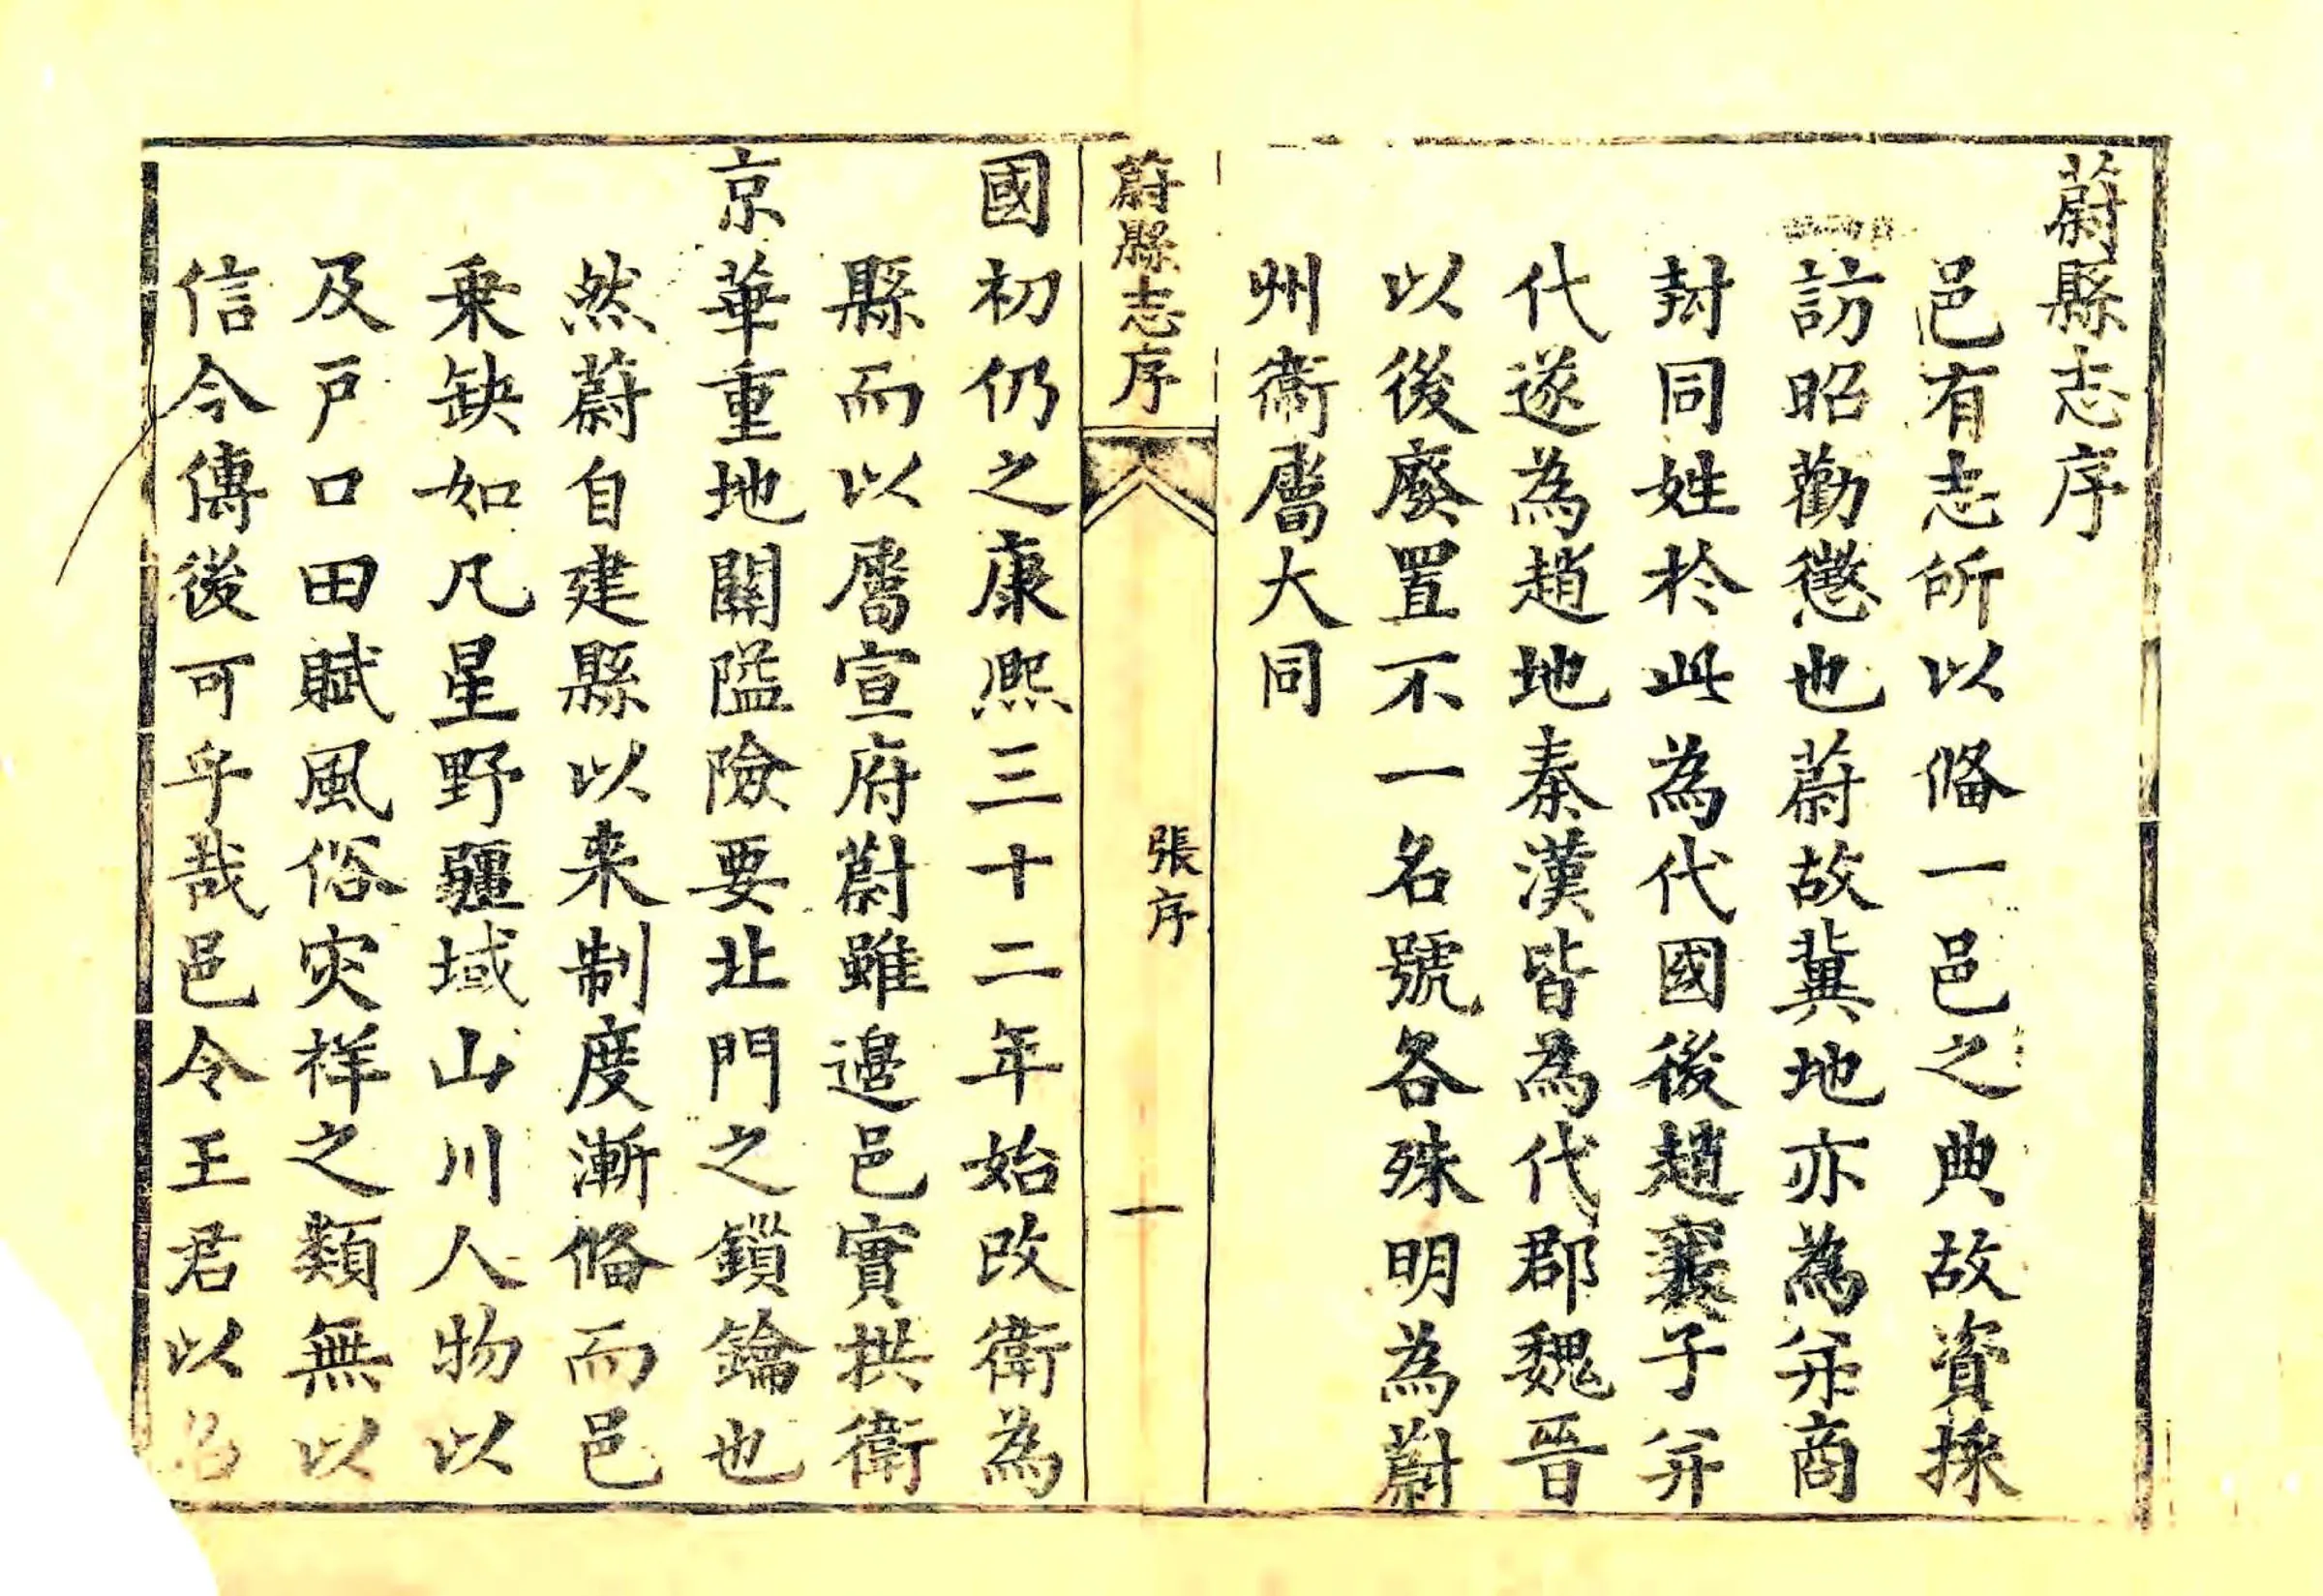 蔚縣志序
邑有志所以俻一邑之典故資採
訪昭勸懲也蔚故冀地亦為并商
封同姓於此為代國後趙襄子并
代遂為趙地秦漢皆為代郡魏晉
以後廢置不一名號各殊明為蔚
州衛屬大同
蔚縣志序
張序
一
國初仍之康熙三十二年始改衛為
縣而以屬宣府蔚雖邉邑實拱衛
京華重地關隘險要北門之鎖鑰也
然蔚自建縣以来制度漸俻而邑
乗缺如凡星野疆域山川人物以
及戸口田賦風俗灾祥之類無以
信今傳後可乎哉邑令王君以名